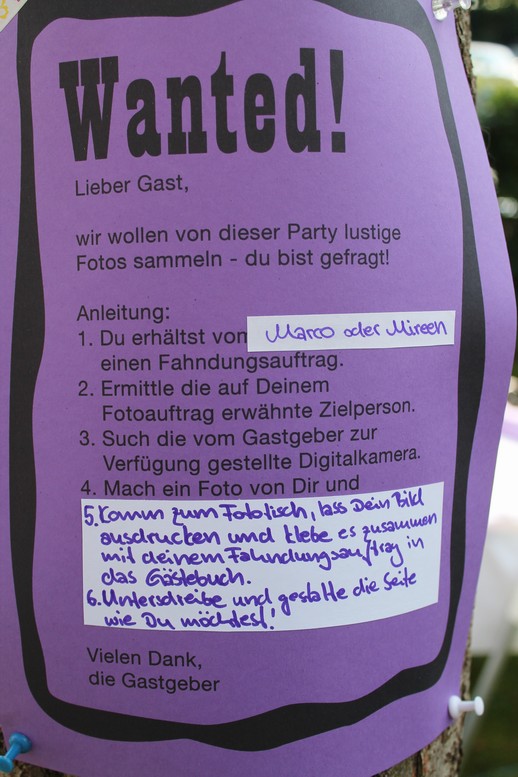 Wanted!
Lieber Gast,
wir wollen von dieser Party lustige
Fotos sammeln - du bist gefragt!
Anleitung:
1. Du erhältst von Marco oder Mireen
einen Fahndungsauftrag.
2. Ermittle die auf Deinem
Fotoauftrag erwähnte Zielperson.
3. Such die vom Gastgeber zur
Verfügung gestellte Digitalkamera.
4. Mach ein Foto von Dir und
5. Komm zum Fototisch, lass Dein Bild
ausdrucken und klebe es zusammen
mit deinem Fahndungsauftrag in
das Gästebuch.
6. Unterschreibe und gestalte die Seite
wie Du möchtest!
Vielen Dank,
die Gastgeber